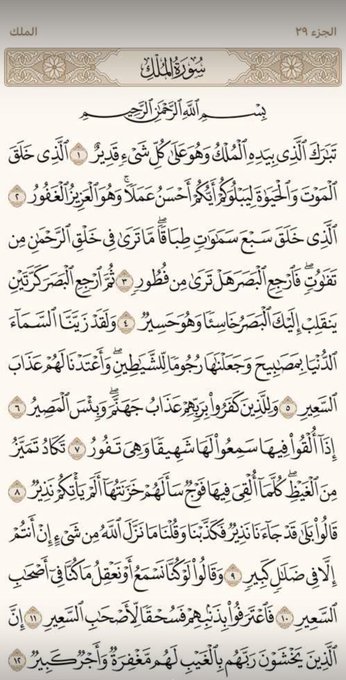 الجزء ٢٩ الملك
سُورَةُ المُلْكِ
بِسْمِ اللَّهِ الرَّحْمَٰنِ الرَّحِيمِ
تَبَٰرَكَ ٱلَّذِى بِيَدِهِ ٱلْمُلْكُ وَهُوَ عَلَىٰ كُلِّ شَىْءٍ قَدِيرٌ ١ ٱلَّذِى خَلَقَ
ٱلْمَوْتَ وَٱلْحَيَوٰةَ لِيَبْلُوَكُمْ أَيُّكُمْ أَحْسَنُ عَمَلًا ۚ وَهُوَ ٱلْعَزِيزُ ٱلْغَفُورُ ٢
ٱلَّذِى خَلَقَ سَبْعَ سَمَٰوَٰتٍ طِبَاقًا ۖ مَّا تَرَىٰ فِى خَلْقِ ٱلرَّحْمَٰنِ مِن
تَفَٰوُتٍ ۖ فَٱرْجِعِ ٱلْبَصَرَ هَلْ تَرَىٰ مِن فُطُورٍ ٣ ثُمَّ ٱرْجِعِ ٱلْبَصَرَ كَرَّتَيْنِ
يَنقَلِبْ إِلَيْكَ ٱلْبَصَرُ خَاسِئًا وَهُوَ حَسِيرٌ ٤ وَلَقَدْ زَيَّنَّا ٱلسَّمَآءَ
ٱلدُّنْيَا بِمَصَٰبِيحَ وَجَعَلْنَٰهَا رُجُومًا لِّلشَّيَٰطِينِ ۖ وَأَعْتَدْنَا لَهُمْ عَذَابَ
ٱلسَّعِيرِ ٥ وَلِلَّذِينَ كَفَرُوا۟ بِرَبِّهِمْ عَذَابُ جَهَنَّمَ ۖ وَبِئْسَ ٱلْمَصِيرُ ٦
إِذَآ أُلْقُوا۟ فِيهَا سَمِعُوا۟ لَهَا شَهِيقًا وَهِىَ تَفُورُ ٧ تَكَادُ تَمَيَّزُ
مِنَ ٱلْغَيْظِ ۖ كُلَّمَآ أُلْقِىَ فِيهَا فَوْجٌ سَأَلَهُمْ خَزَنَتُهَآ أَلَمْ يَأْتِكُمْ نَذِيرٌ ٨
قَالُوا۟ بَلَىٰ قَدْ جَآءَنَا نَذِيرٌ فَكَذَّبْنَا وَقُلْنَا مَا نَزَّلَ ٱللَّهُ مِن شَىْءٍ إِنْ أَنتُمْ
إِلَّا فِى ضَلَٰلٍ كَبِيرٍ ٩ وَقَالُوا۟ لَوْ كُنَّا نَسْمَعُ أَوْ نَعْقِلُ مَا كُنَّا فِىٓ أَصْحَٰبِ
ٱلسَّعِيرِ ١٠ فَٱعْتَرَفُوا۟ بِذَنۢبِهِمْ فَسُحْقًا لِّأَصْحَٰبِ ٱلسَّعِيرِ ١١ إِنَّ
ٱلَّذِينَ يَخْشَوْنَ رَبَّهُم بِٱلْغَيْبِ لَهُم مَّغْفِرَةٌ وَأَجْرٌ كَبِيرٌ ١٢